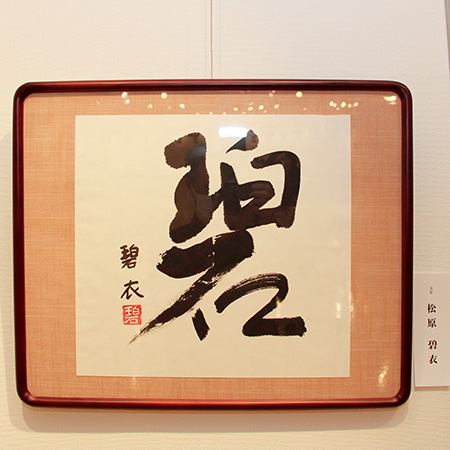 碧
碧衣
碧
松原 碧衣